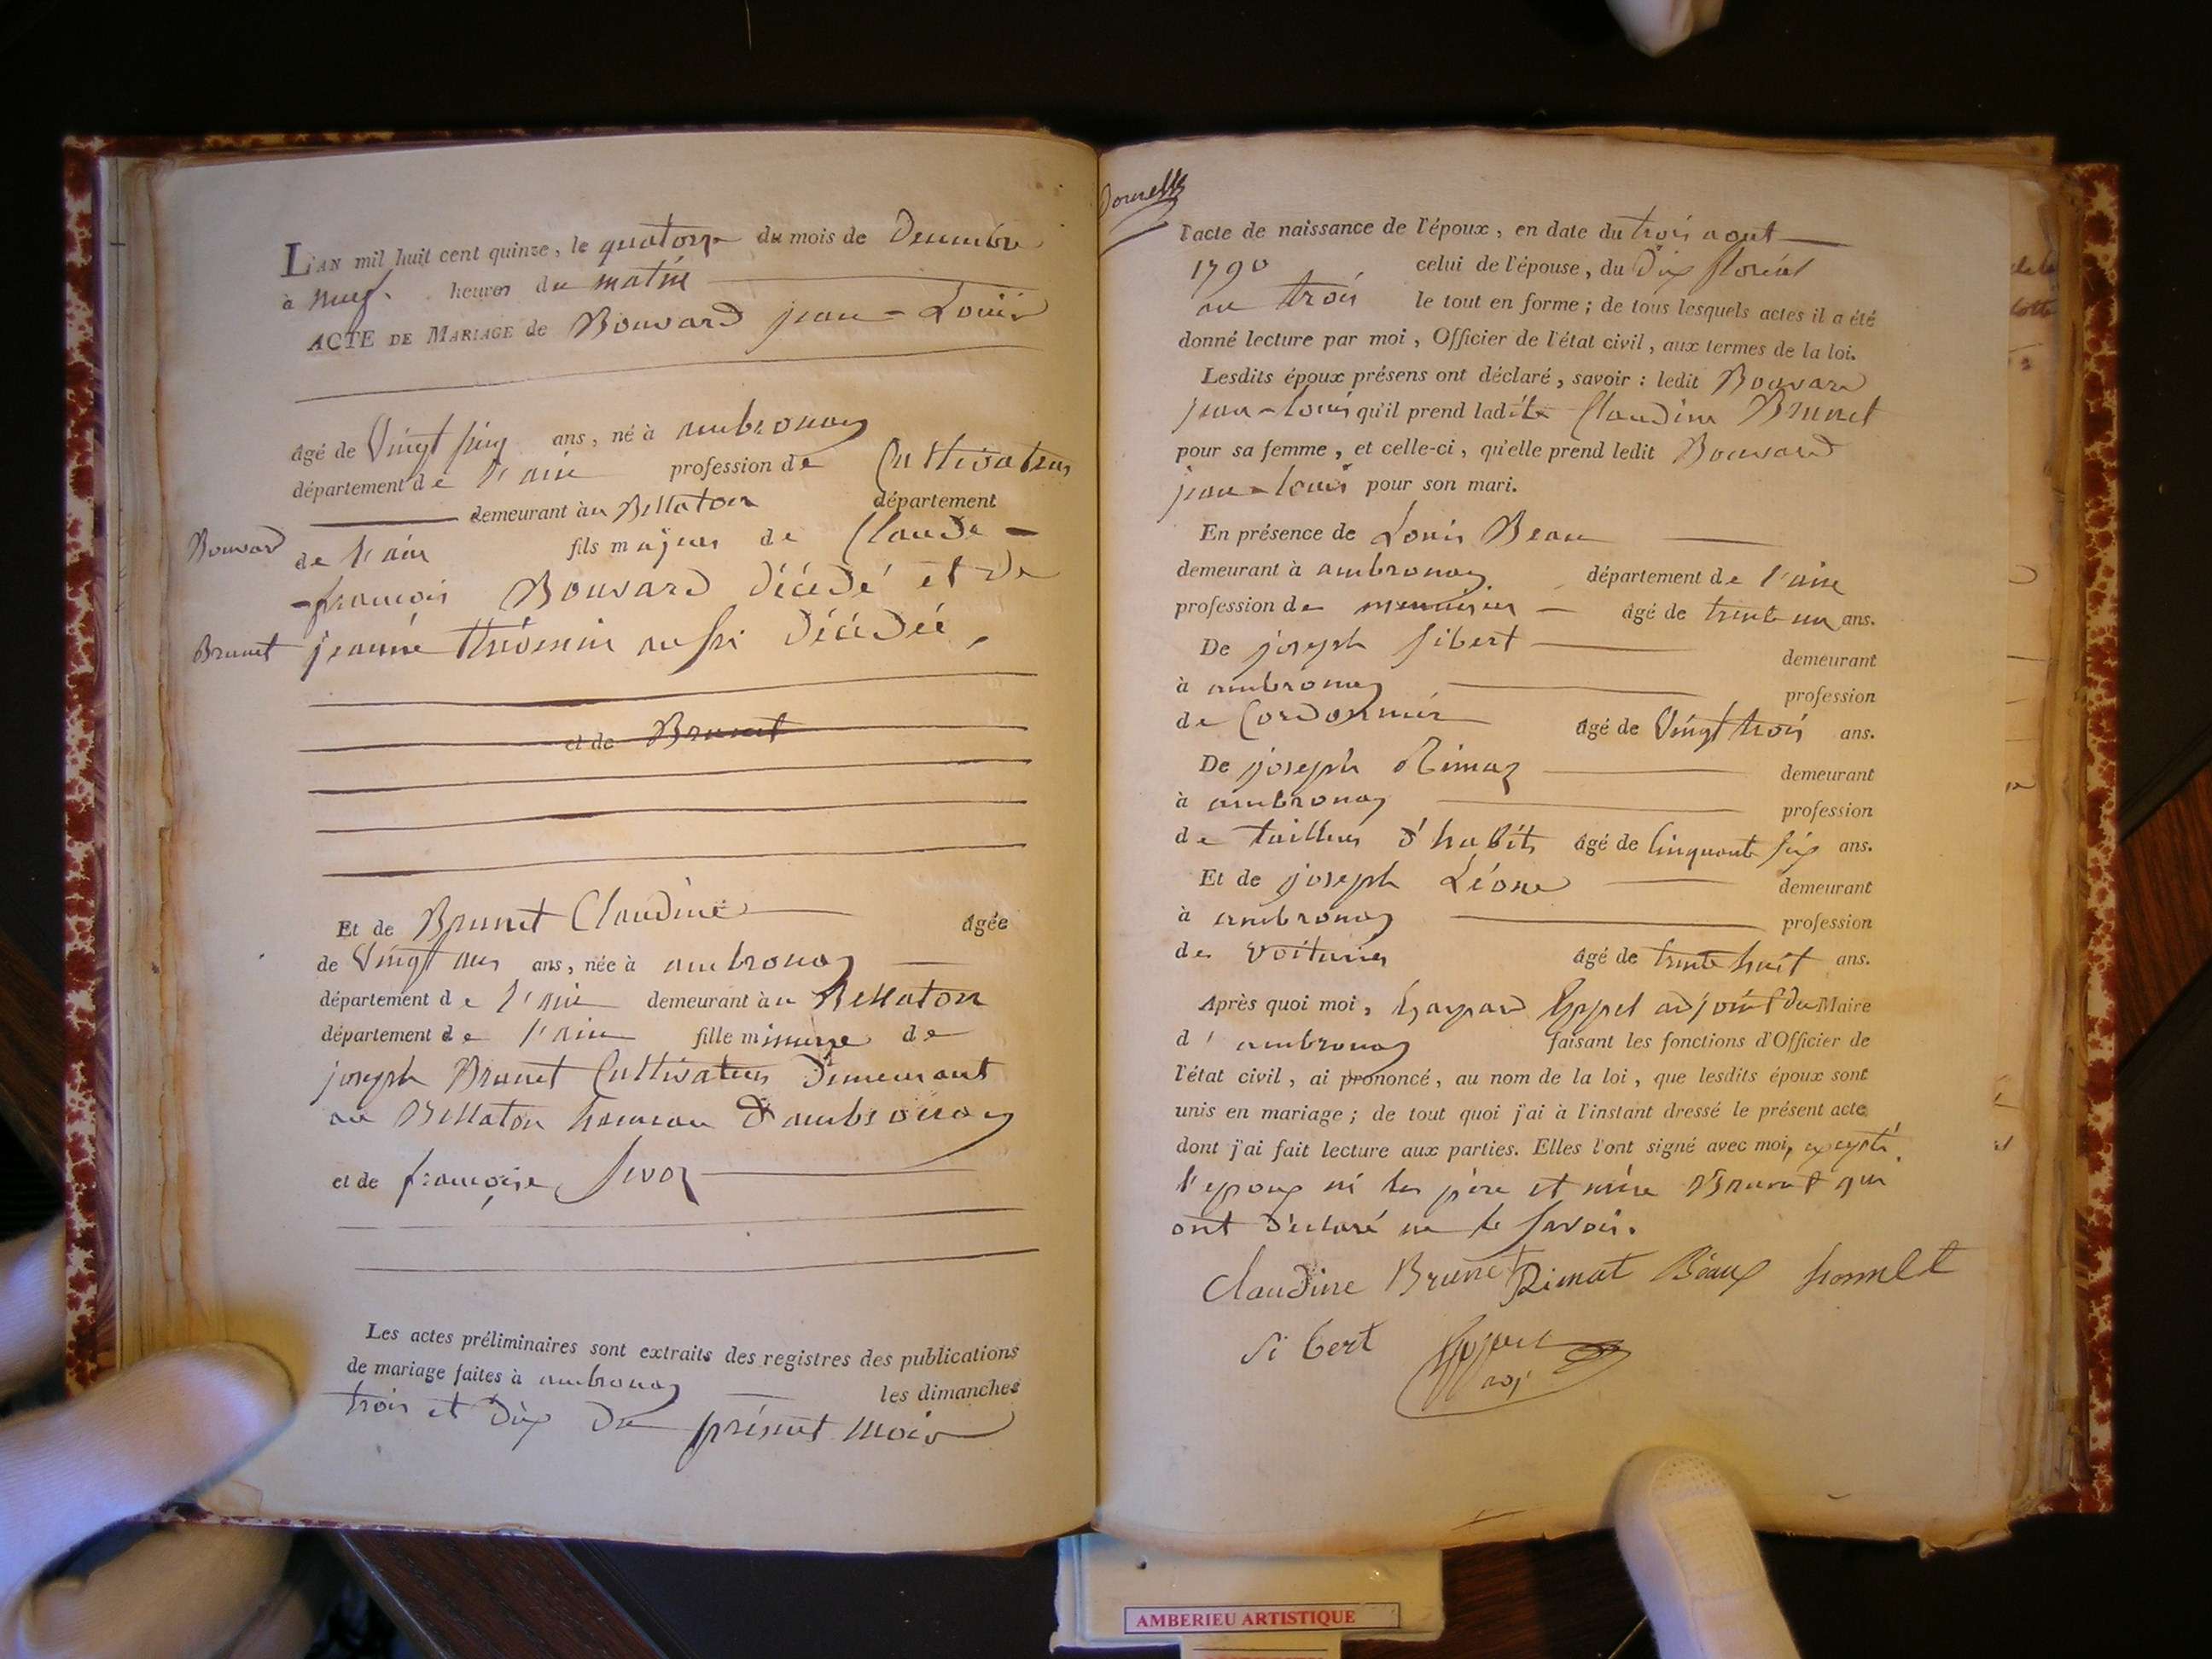 L'AN mil huit cent quinze, le quatorze du mois de Decembre
à neuf heures du matin
ACTE DE MARIAGE de Bouvard jean-Louis
âgé de Vingt cinq ans, né à ambronay
département de l'ain profession de Cultivateur
demeurant au Bellaton département
Bouvard
de l'ain fils majeur de Claude-
-françois Bouvard décédé et de
Brunet
jeanne thévenin aussi décédée,
et de Brunet
Et de Brunet Claudine âgée
de Vingt ans ans, née à ambronay
département de l'ain demeurant au Bellaton
département de l'ain fille mineure de
joseph Brunet Cultivateur demeurant
au Bellaton hameau d'ambronay
et de françoise
Les actes préliminaires sont extraits des registres des publications
de mariage faites à ambronay les dimanches
trois et dix du présent mois
l'acte de naissance de l'époux, en date du trois aout
1790 celui de l'épouse, du dix floréal
an trois le tout en forme; de tous lesquels actes il a été
donné lecture par moi, Officier de l'état civil, aux termes de la loi.
Lesdits époux présens ont déclaré, savoir: ledit Bouvard
jean-louis qu'il prend ladite Claudine Brunet
pour sa femme, et celle-ci, qu'elle prend ledit Bouvard
jean-louis pour son mari.
En présence de Louis Beau
demeurant à ambronay département de l'ain
profession de menuisier âgé de trente un ans.
De joseph sibert demeurant
à ambronay profession
de Cordonnier âgé de Vingt trois ans.
De joseph Rimaz demeurant
à ambronay profession
de tailleur d'habits âgé de Cinquante six ans.
Et de joseph Léone demeurant
à ambronay profession
de voiturier âgé de trente huit ans.
Après quoi moi, Gaspard adjoint du Maire
d'ambronay faisant les fonctions d'Officier de
l'état civil, ai prononcé, au nom de la loi, que lesdits époux sont
unis en mariage; de tout quoi j'ai à l'instant dressé le présent acte
dont j'ai fait lecture aux parties. Elles l'ont signé avec moi, excepté
l'epoux ni les père et mère Brunet qui
ont déclaré ne le savoir.
Claudine Brunet Rimat Beau
Si bert
adj.
AMBERIEU ARTISTIQUE